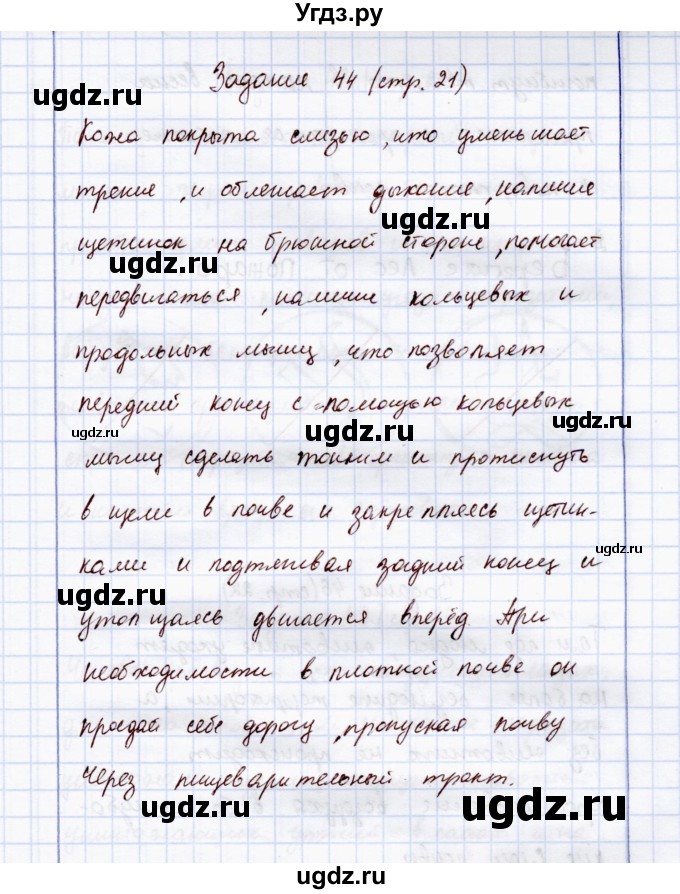 Угдз.ру
Задание 44 (стр. 21)
ugdz.ru
Кожа покрыта слизью, что уменьшает
трение, и облегчает дыхание, наличие
ugdz.ru
щетинок на брюшной стороне, помогает
передвигаться, наличие кольцевых и
ugdz.ru
продольных мышц, что позволяет
передний конец с помощью кольцевых
ugdz.ru ugdz.ru ugdz.ru
мышц сделать тонким и протиснуть
в щели в почве и закрепляясь щетин-
ugdz.ru
ками и подтягивая задний конец и
ugdz.ru
утолщаясь двигается вперёд. При
необходимости в плотной почве он
ugdz.ru
проедай себе дорогу, пропуская почву
через пищеварительный тракт.
ugdz.ru ugdz.ru
ugdz.ru ugdz.ru